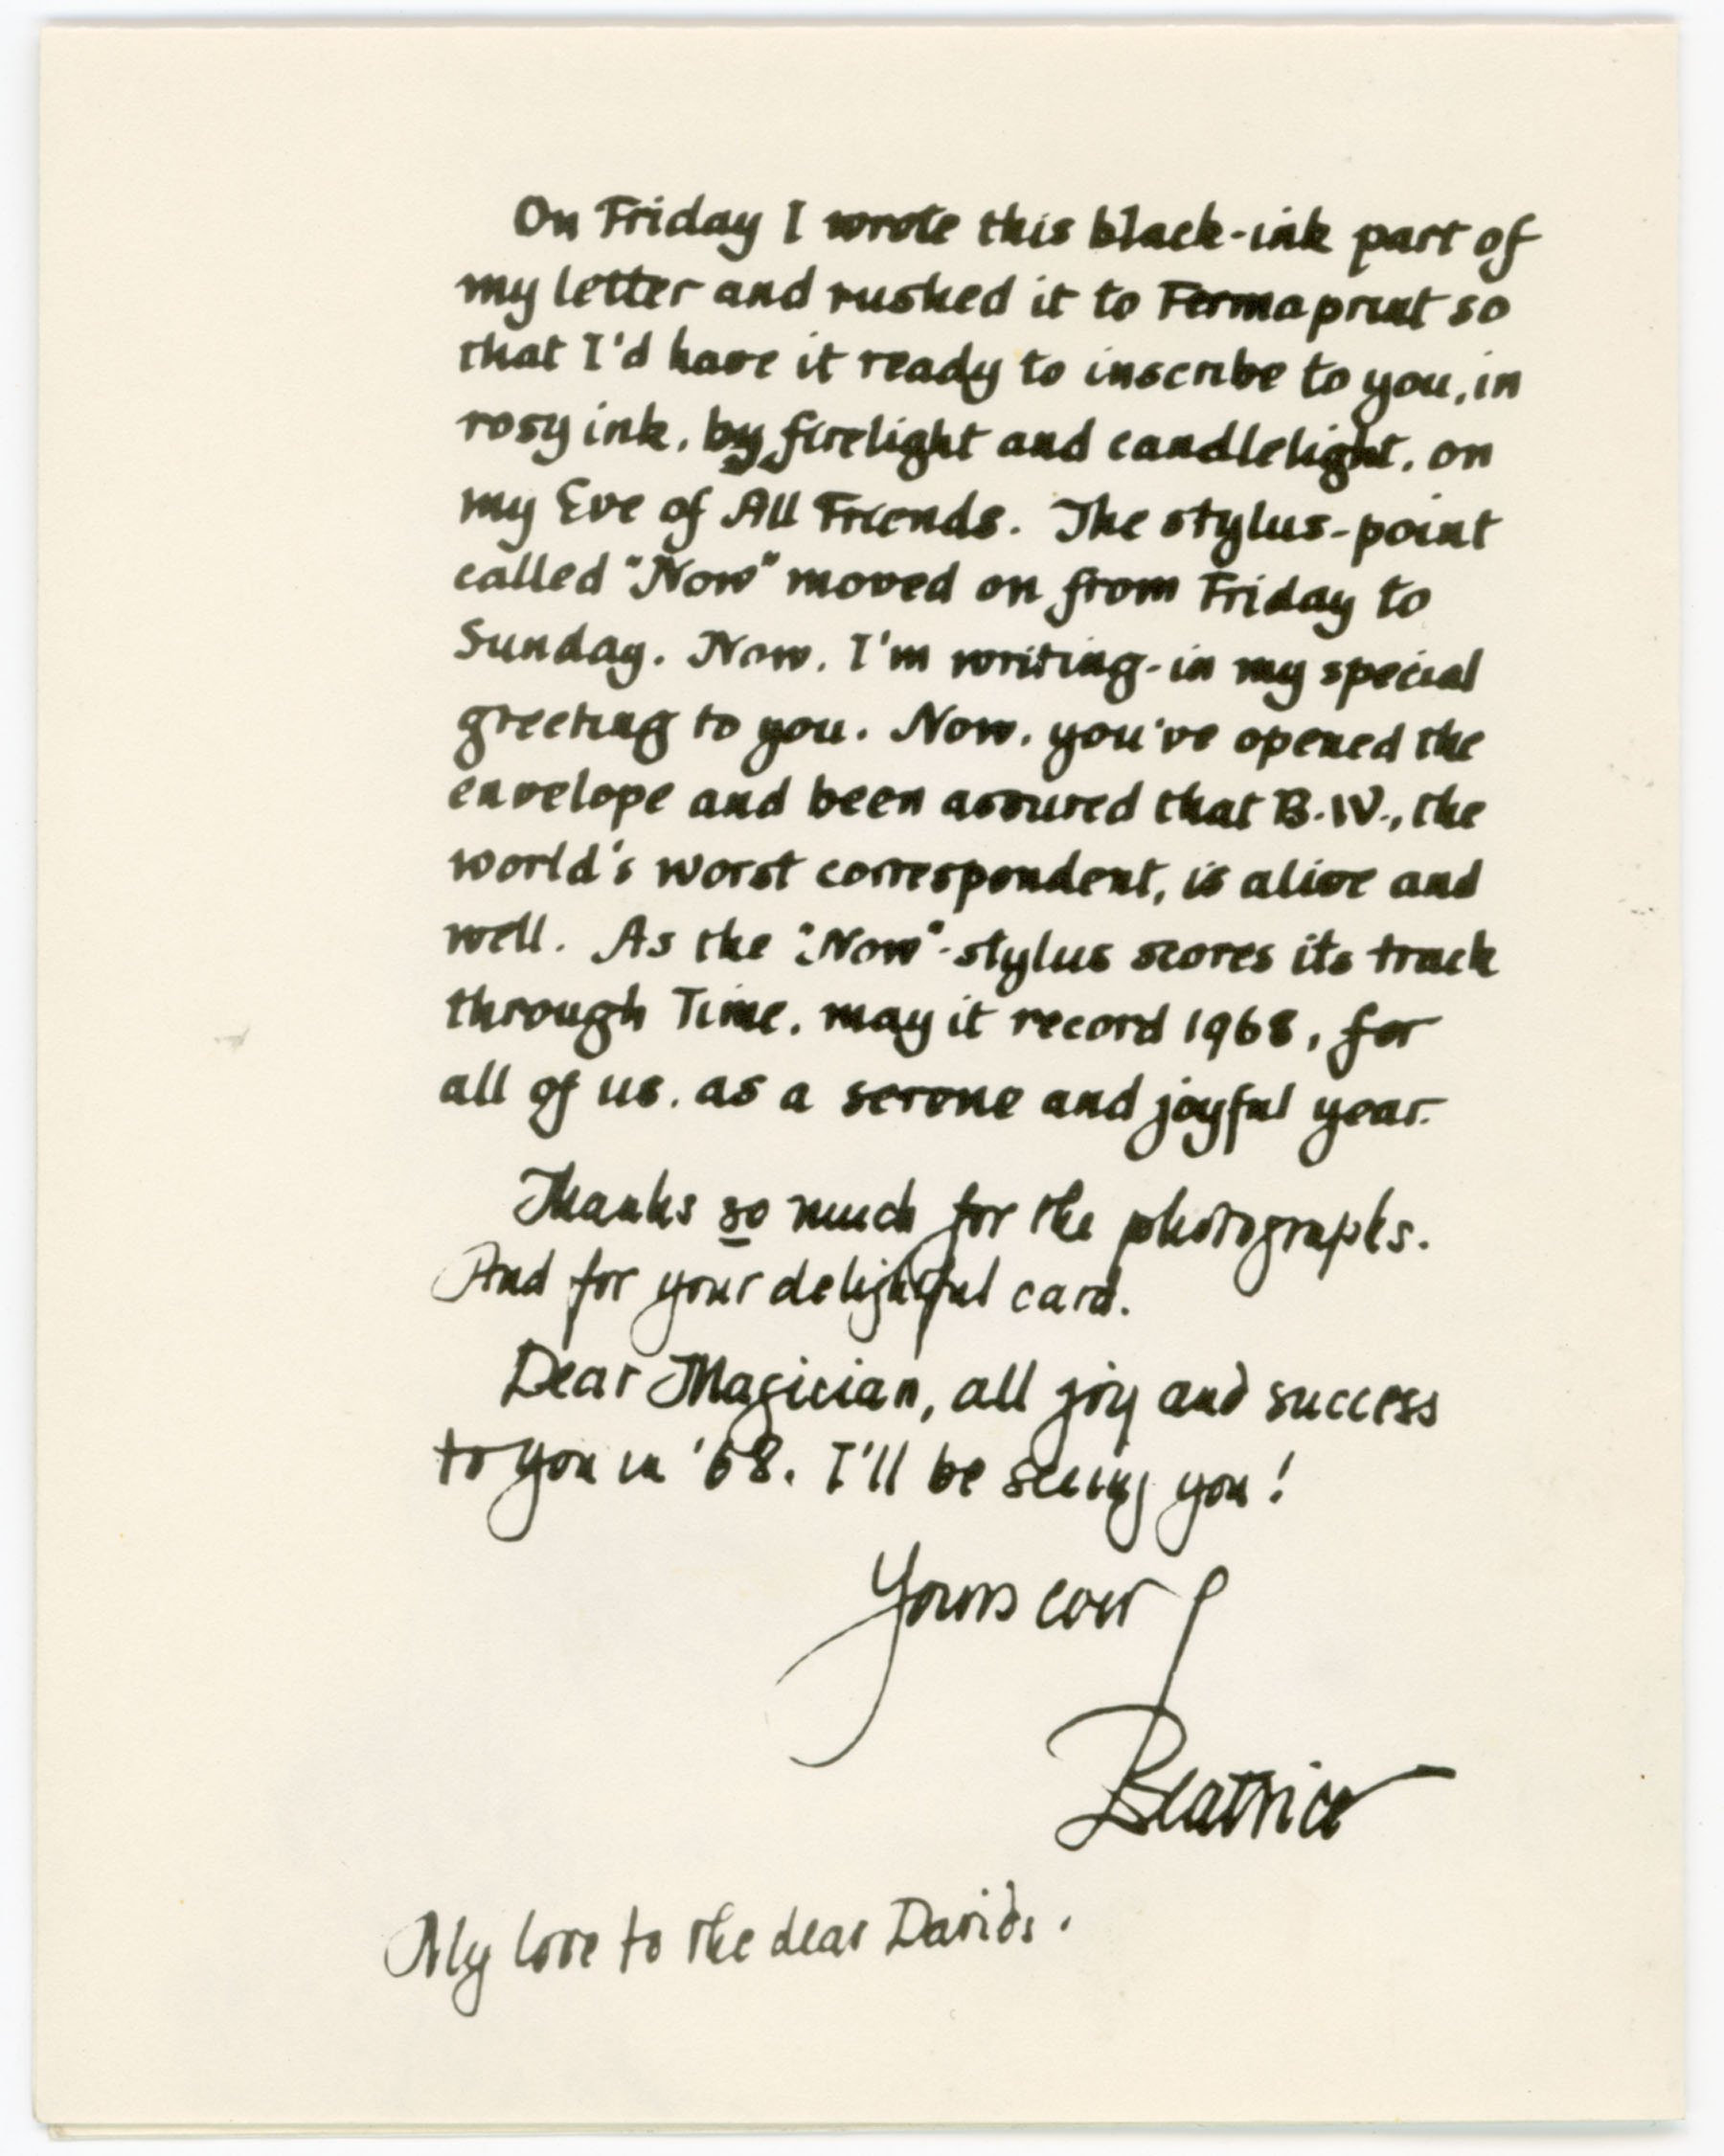 On Friday I wrote this black-ink part of
my letter and rushed it to Permaprint so
that I'd have it ready to inscribe to you, in
rosy ink, by firelight and candlelight, on
my Eve of All Friends. The stylus-point
called "Now" moved on from Friday to
Sunday. Now, I'm writing-in my special
greeting to you. Now, you've opened the
envelope and been assured that B.W., the
world's worst correspondent, is alive and
well. As the "Now"-stylus scores its track
through Time, may it record 1968, for
all of us, as a serene and joyful year.
Thanks so much for the photographs.
And for your delightful card.
Dear Magician, all joy and success
to you in '68. I'll be seeing you!
Yours ever
Beatrice
My love to the dear Davids.